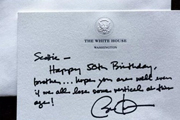 THE WHITE HOUSE
WASHINGTON
Scottie —
Happy 50th Birthday,
brother... hope you are well even
if we all lose some vertical at this
age!